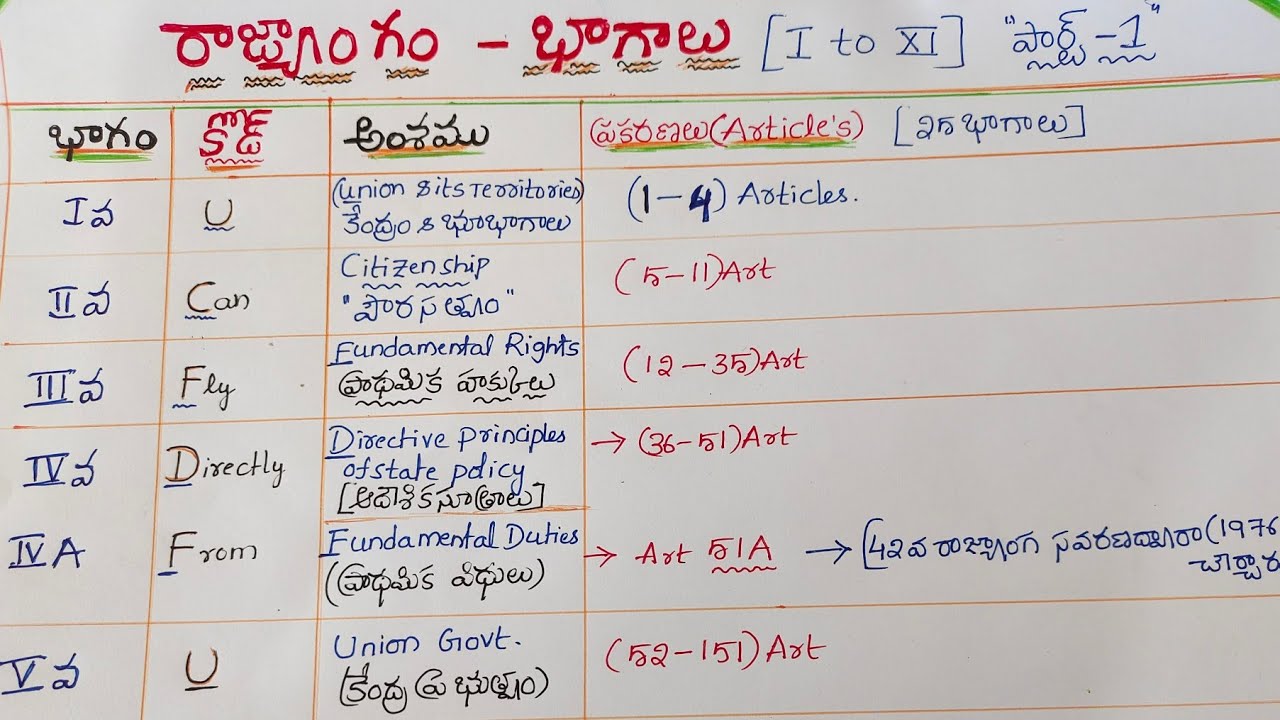 రాజ్యాంగం - భాగాలు [I to XI] "పార్ట్-1"
భాగం కోడ్ అంశము ప్రకరణలు(Article's) [25 భాగాలు]
I వ U (Union & its Territories) (1-4) Articles.
కేంద్రం & భూభాగాలు
II వ Can Citizenship (5-11)Art
"పౌరసత్వం"
III వ Fly Fundamental Rights (12-35)Art
ప్రాథమిక హక్కులు
IV వ Directly Directive principles → (36-51)Art
of state policy
[ఆదేశిక సూత్రాలు]
IV A From Fundamental Duties → Art 51A → [42వ రాజ్యాంగ సవరణ ద్వారా (1976
(ప్రాథమిక విధులు) చేర్చారు
V వ U Union Govt. (52-151)Art
(కేంద్ర ప్రభుత్వం)